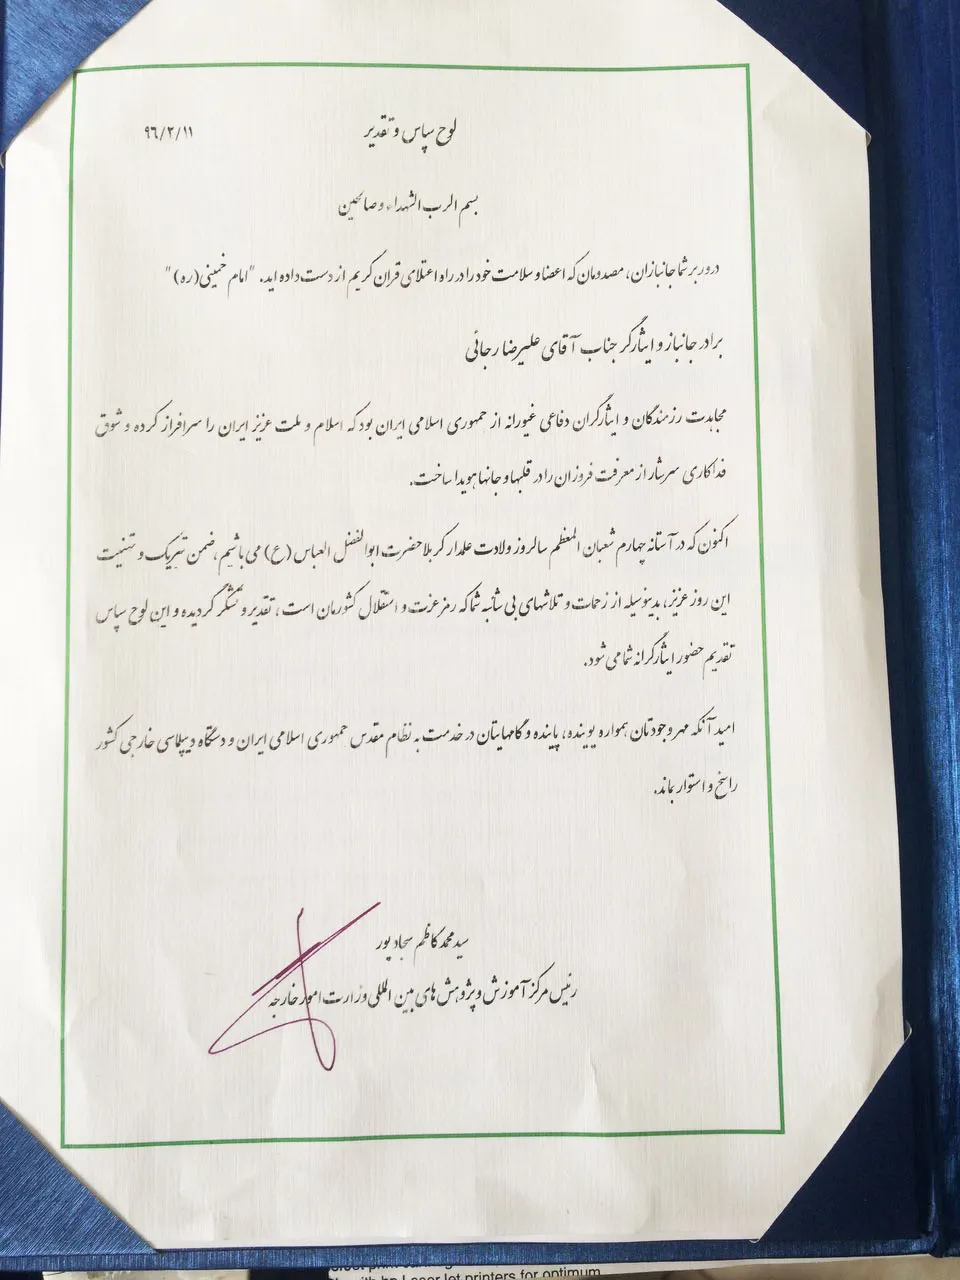 لوح سپاس و تقدیر
۹٦/۲/۱۱
بسم الرب الشهداء و صالحین
درور بر شما جانبازان، مصدومان که اعضا و سلامت خود را در راه اعتلای قران کریم از دست داده اید. "امام خمینی(ره) "
برادر جانباز و ایثارگر جناب آقای علیرضا رجائی
مجاهدت رزمندگان و ایثارگران دفاعی غیورانه از جمهوری اسلامی ایران بود که اسلام و ملت عزیز ایران را سرافراز کرده و شوق
فداکاری سرشار از معرفت فروزان را در قلبها و جانها هویدا ساخت.
اکنون که در آستانه چهارم شعبان المعظم سالروز ولادت علمدار کربلا حضرت ابوالفضل العباس (ع) می باشیم، ضمن تبریک و تهنیت
این روز عزیز، بدینوسیله از زحمات و تلاشهای بی شائبه شما که رمز عزت و استقلال کشورمان است، تقدیر و تشکر گردیده و این لوح سپاس
تقدیم حضور ایثارگرانه شما می شود.
امید آنکه مهر وجودتان همواره پوینده، پاینده و گامهایتان در خدمت به نظام مقدس جمهوری اسلامی ایران و دستگاه دیپلماسی خارجی کشور
راسخ و استوار بماند.
سید محمد کاظم سجاد پور
رئیس مرکز آموزش و پژوهش های بین المللی وزارت امور خارجه
with hp LaserJet printers for optimum